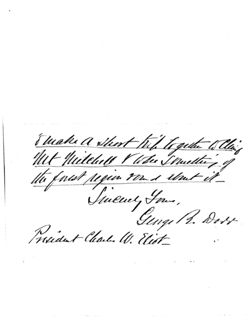 & make a short trip together to Cling-
Mt Mitchell & see something of
the forest region round about it —
Sincerely Yours,
George B. Dorr
President Charles W. Eliot.